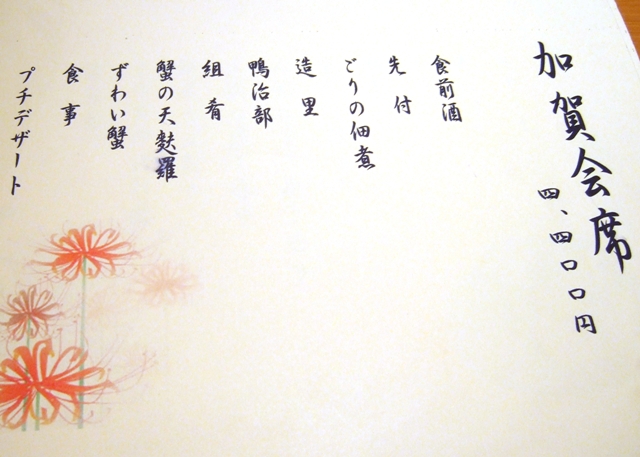 加賀会席
四、四〇〇円
食前酒
先付
ごりの佃煮
造里
鴨治部
組肴
蟹の天麩羅
ずわい蟹
食事
プチデザート